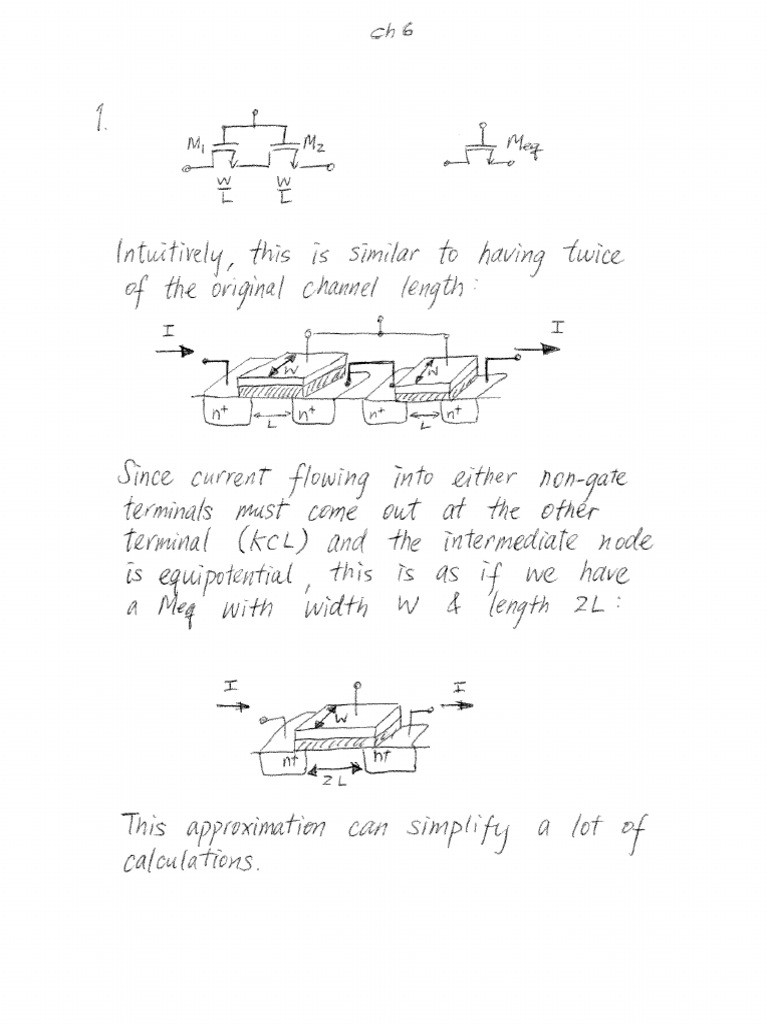 ch 6
1.
M1 M2 Meq
W W
L L
Intuitively, this is similar to having twice
of the original channel length:
I I
W W
n+ L n+ n+ L n+
Since current flowing into either non-gate
terminals must come out at the other
terminal (KCL) and the intermediate node
is equipotential, this is as if we have
a Meq with width W & length 2L:
I I
W
n+ n+
2L
This approximation can simplify a lot of
calculations.